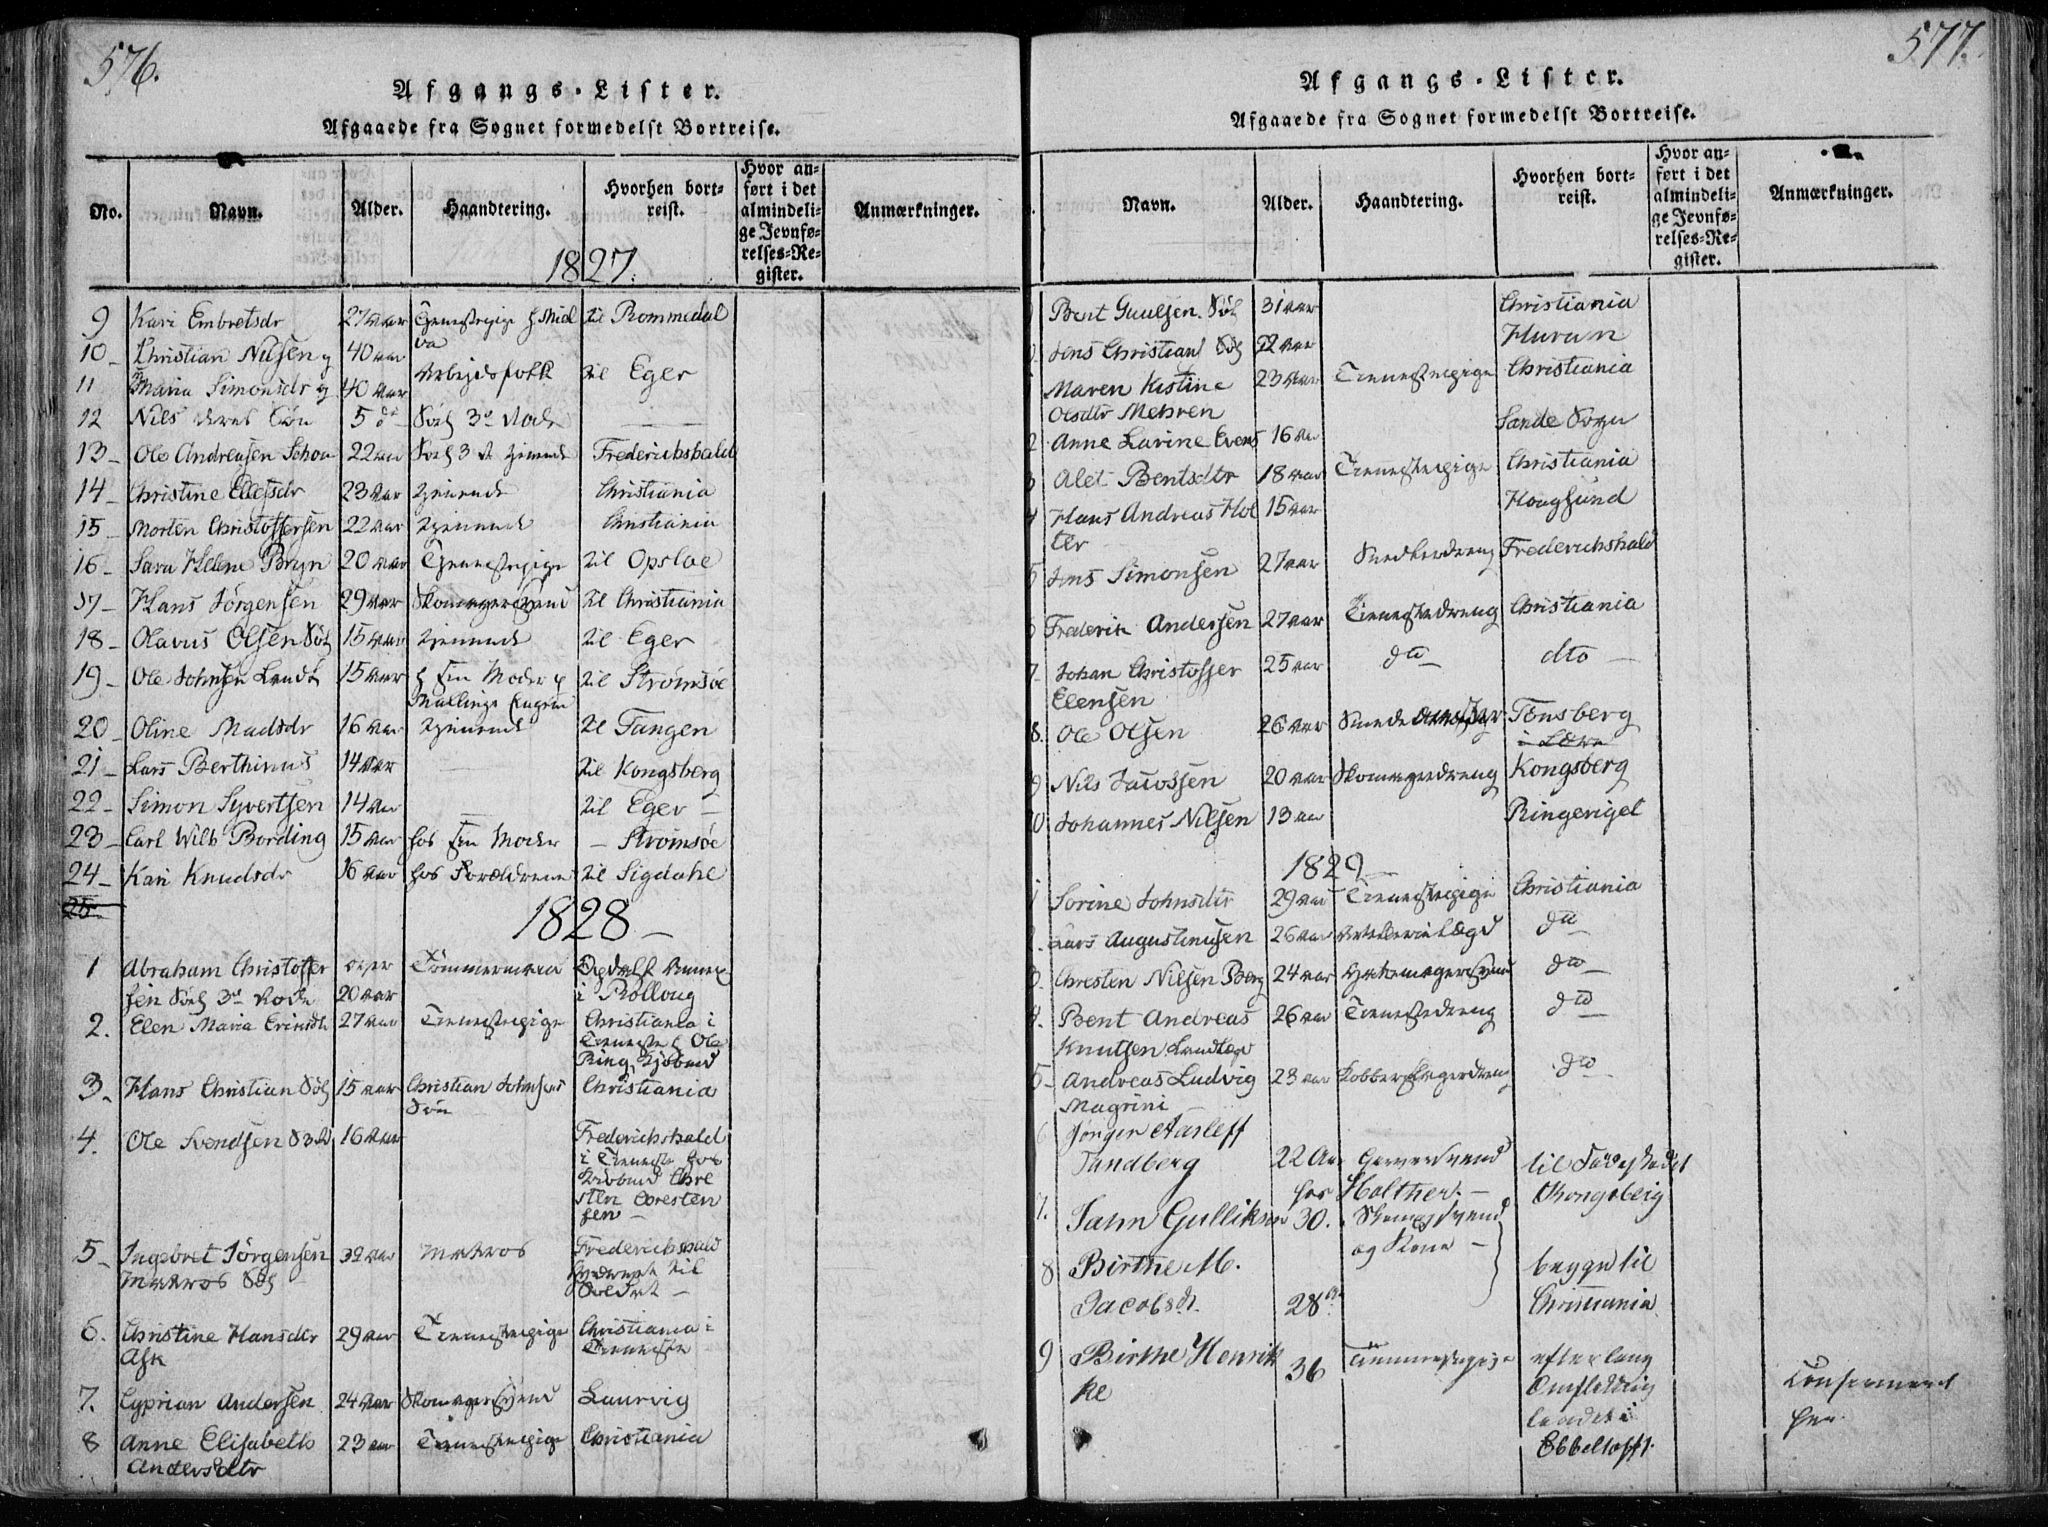 576.
Afgangs-Lister.
Afgaaede fra Sognet formedelst Bortreise.
No. Navn. Alder. Haandtering. Hvorhen bortreist. Hvor anført i det almindelige Jevnførelses-Register. Anmærkninger.
1827.
9 Kari Embretsdr 27 aar Tienestepige til Rommedal
10 Christian Nilsen og 40 aar Arbejdsfolk til Eger
11 Maria Simonsdr og 40 aar
12 Nils deres Søn 5 do
13 Ole Andreasen 22 aar tjenende Frederichshald
14 Christine Ellefsdr 23 aar tjenende Christiania
15 Morten Christoffersen 22 aar tjenende Christiania
16 Sara Helene Bryn 20 aar Tjenestepige til Opsloe
17 Hans Jørgensen 29 aar Skomagersvend til Christiania
18 Olavus Olsen 15 aar tjenende til Eger
19 Ole Johnsen Landt 15 aar Moder til Strømsøe
20 Oline Madsdr 16 aar tjenende til Tangen
21 Lars Berthinus 14 aar til Kongsberg
22 Simon Syvertsen 14 aar til Eger
23 Carl Wilh Bording 15 aar hos sin Moder Strømsøe
24 Kari Knudsdr 16 aar hos Forældrene til Sigdahl
25
1828
1 Abraham Christoffersen 20 aar Tømmermand i Rolloug
2. Elen Maria 27 aar Tienestepige Christiania i Tieneste Ole Ring
3. Hans Christian 15 aar Christian Johnsens Søn Christiania
4. Ole Svendsen 16 aar Frederichshald i Tieneste hos
5 Ingebret Jørgensen Matros 32 aar Matros Frederichshald
6. Christine Hansdtr Ask 29 aar Tienestepige Christiania i Tieneste
7. Cyprian Andersen 24 aar Skomagersvend Laurvig
8 Anne Elisabeth Andersdtr 23 aar Tienestepige Christiania
577.
Afgangs-Lister.
Afgaaede fra Sognet formedelst Bortreise.
Navn. Alder. Haandtering. Hvorhen bortreist. Hvor anført i det almindelige Jevnførelses-Register. Anmærkninger.
Bent Guulsen 31 aar Christiania
Jens Christian 22 aar Hurum
Maren Kistine Olsdtr Mehren 23 aar Tienestepige Christiania
2 Anne Lavine 16 aar Sande Sogn
3 Alet Bentsdtr 18 aar Tienestepige Christiania
4 Hans Andreas Holter 15 aar Hougsund
5 Jens Simonsen 27 aar Snedkerdreng Frederichshald
6 Frederik Andersen 27 aar Tienestedreng Christiania
7 Johan Christoffer Elensen 25 aar do dto
8. Ole Olsen 26 aar Tønsberg
9 Nils Jacobsen 20 aar Skomagerdreng Kongsberg
10 Johannes Nilsen 13 aar Ringeriget
1829
1 Sorine Johnsdtr 29 aar Tienestepige Christiania
2. Lars Augustinusen 26 aar do
3. Chresten Nilsen Berg 24 aar do
4. Bent Andreas Knutsen 26 aar Tienestedreng do
5 Andreas Ludvig Magrini 23 aar Kobberslagerdreng do
6 Jørgen Aarleff Tandberg 22 Aar Garversvend
hos Holther
7. Jahn Gulliksen 30. og Kone
8 Birthe M. Jacobsdt. 28 begge til Christiania
9 Birthe Henrikke 36 Tiennestepige efter lang i Ebbeltofft.